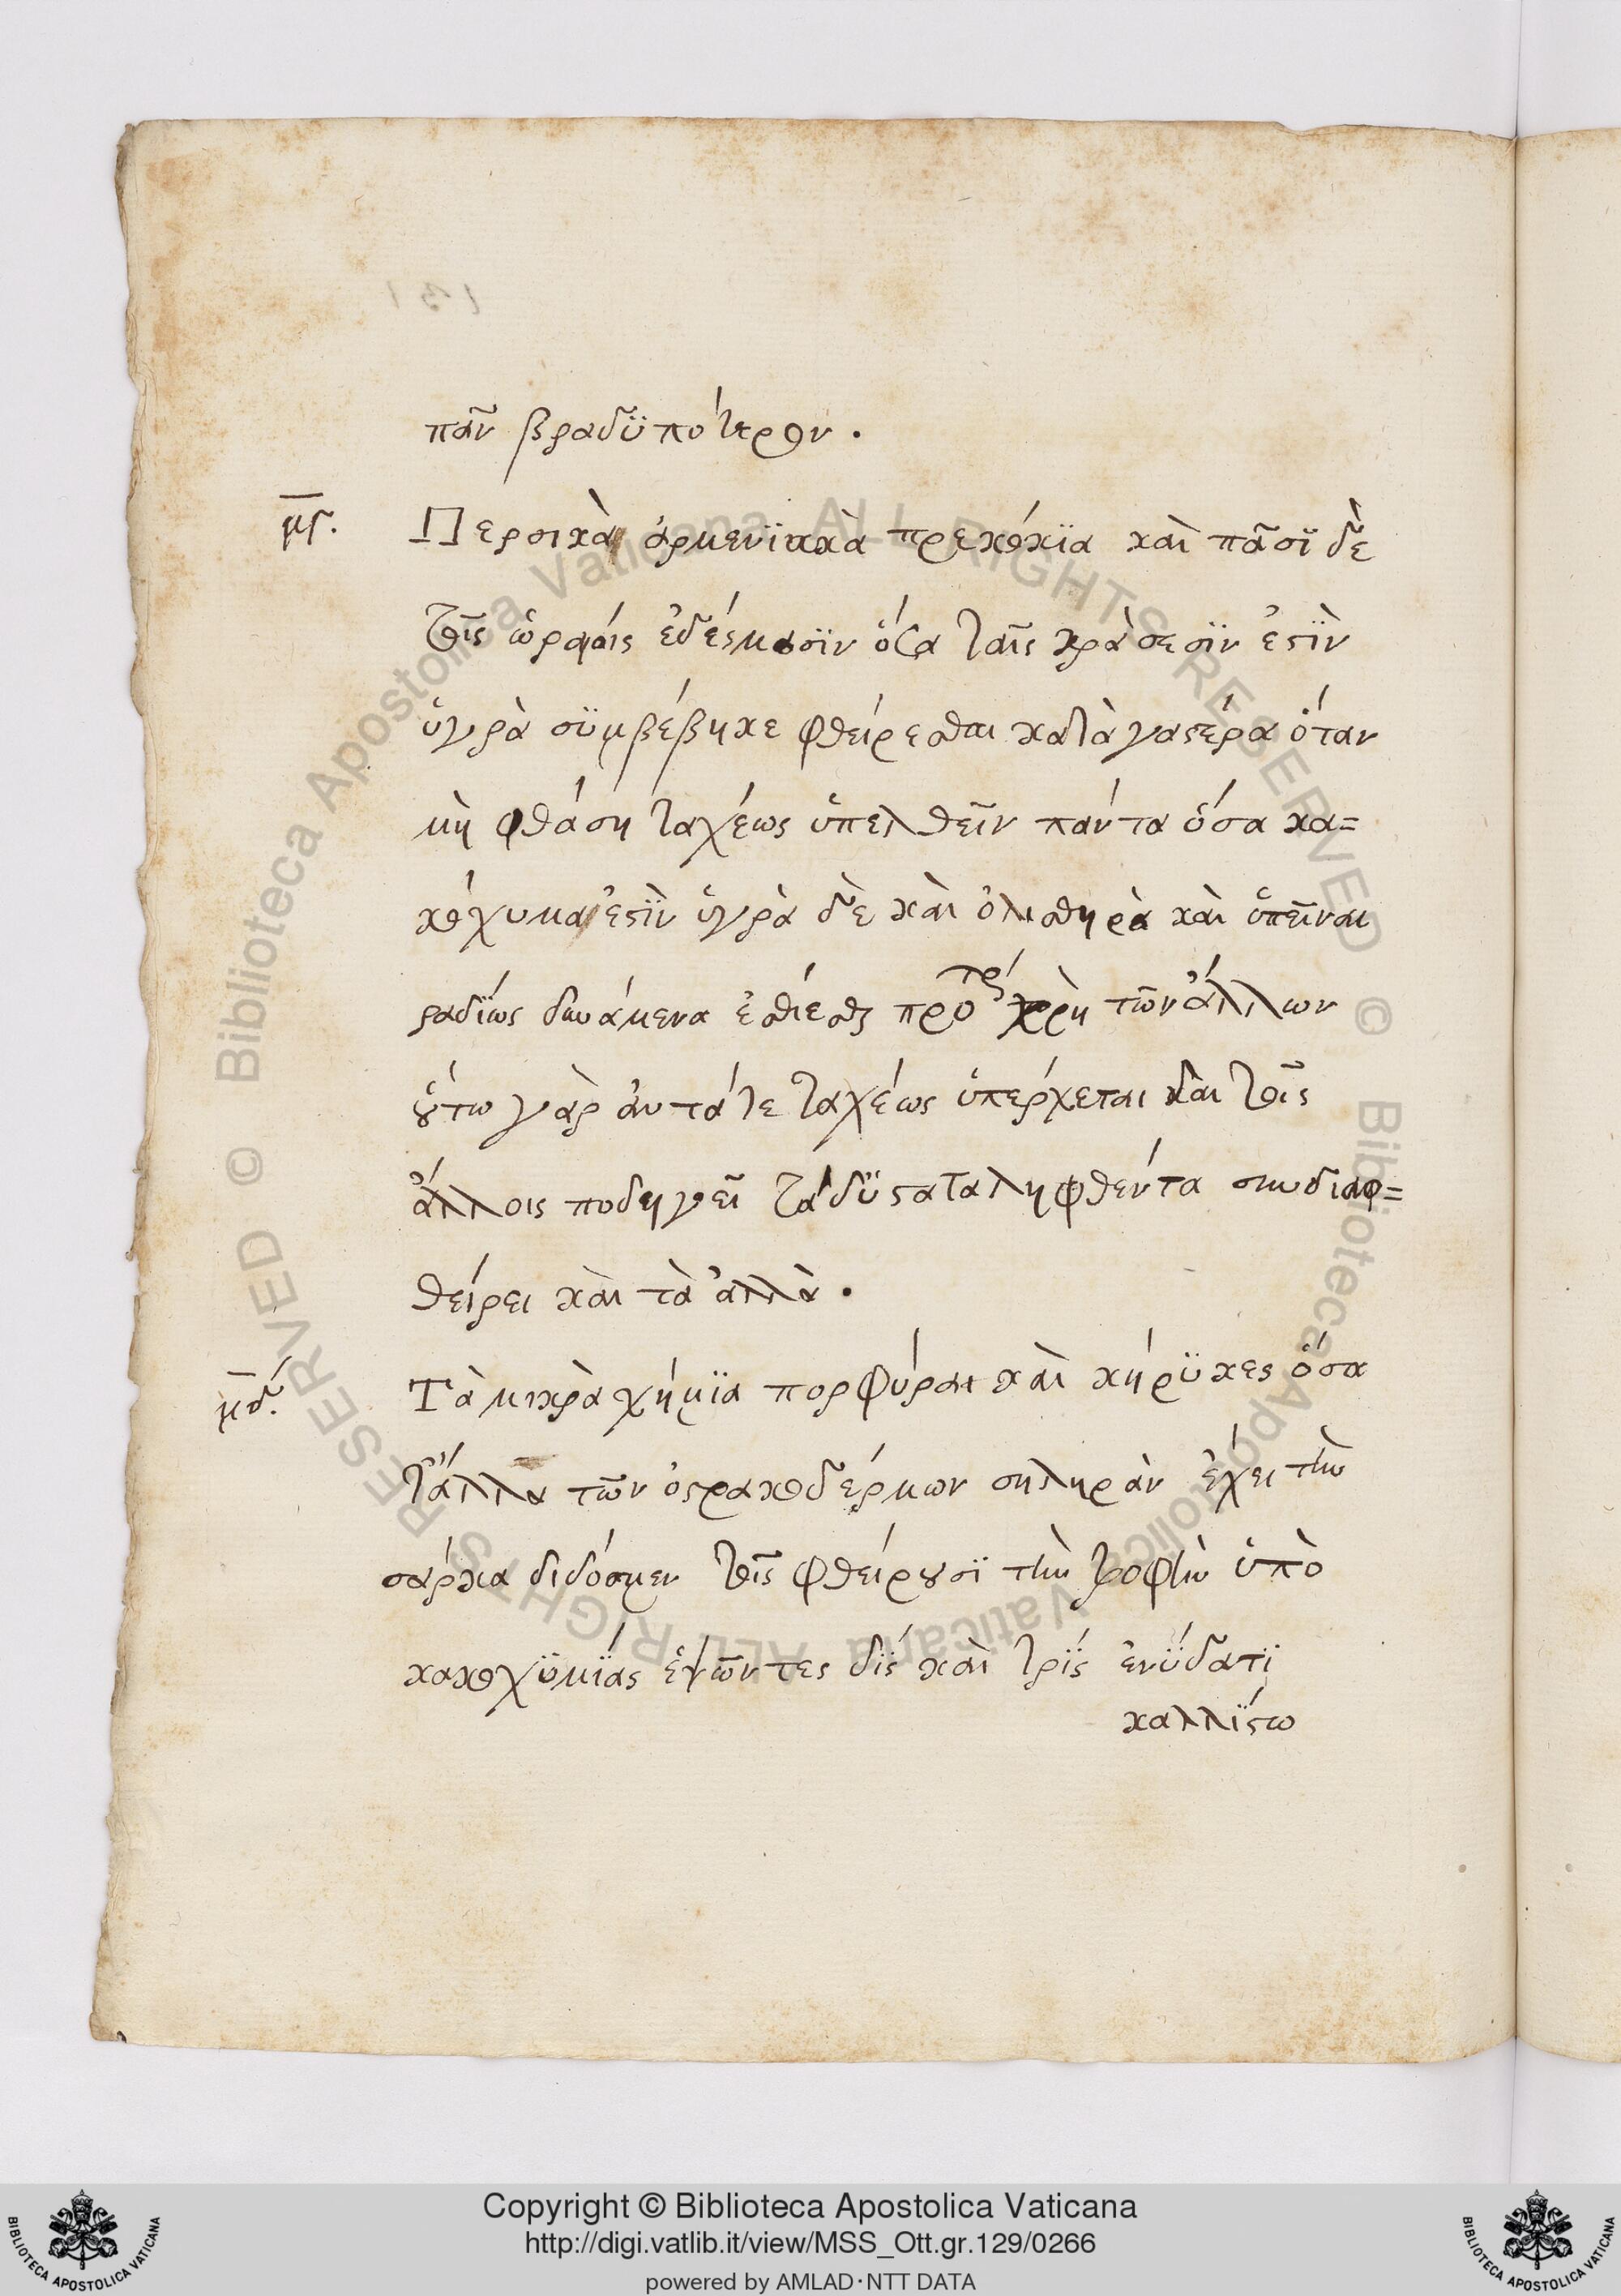 πᾶν βραδϋπότερον.
μγ. Περσικὰ ἀρμενϊακὰ πρεκόκϊα καὶ πᾶσϊ δὲ
τοῖς ὡραίοις ἐδέσμασϊν ὅσα ταῖς κράσεσϊν ἐστϊν
ὑγρὰ σϋμβέβηκε φθείρεσθαι κατὰ γαστέρα ὅταν
μὴ φθάση ταχέως ὑπελθεῖν πάντα ὅσα κα=
κόχυμα ἐστϊν ὑγρὰ δὲ καὶ ὀλισθηρὰ καὶ ὑπεῖναι
ραδΐως δυνάμενα ἐσθίεσθαι πρότερόν χρὴ τῶν ἄλλων
οὕτω γὰρ αὐτά τε ταχέως ὑπέρχεται καὶ τοῖς
ἄλλοις ποδηγεῖ τὰ δϋσαταληφθέντα συνδιαφ=
θείρει καὶ τὰ ἀλλὰ.
μδ. Τὰ μικρὰ χήμϊα πορφύραι καὶ κήρϋκες ὅσα
τἄλλα τῶν ὀστρακοδέρμων σκληρὰν ἔχει τὴν
σάρκα δίδόσμεν τοῖς φθείρουσϊ τὴν τροφὴν ὑπὸ
κακοχϋμΐας ἑψῶντες δΐς καὶ τρΐς ἐν ὕδατϊ
καλλΐστω
Copyright © Biblioteca Apostolica Vaticana
http://digi.vatlib.it/view/MSS_Ott.gr.129/0266
powered by AMLAD·NTT DATA
BIBLIOTECA APOSTOLICA VATICANA
BIBLIOTECA APOSTOLICA VATICANA
© Biblioteca Apostolica Vaticana ALL RIGHTS RESERVED
© Biblioteca Apostolica Vaticana ALL RIGHTS RESERVED